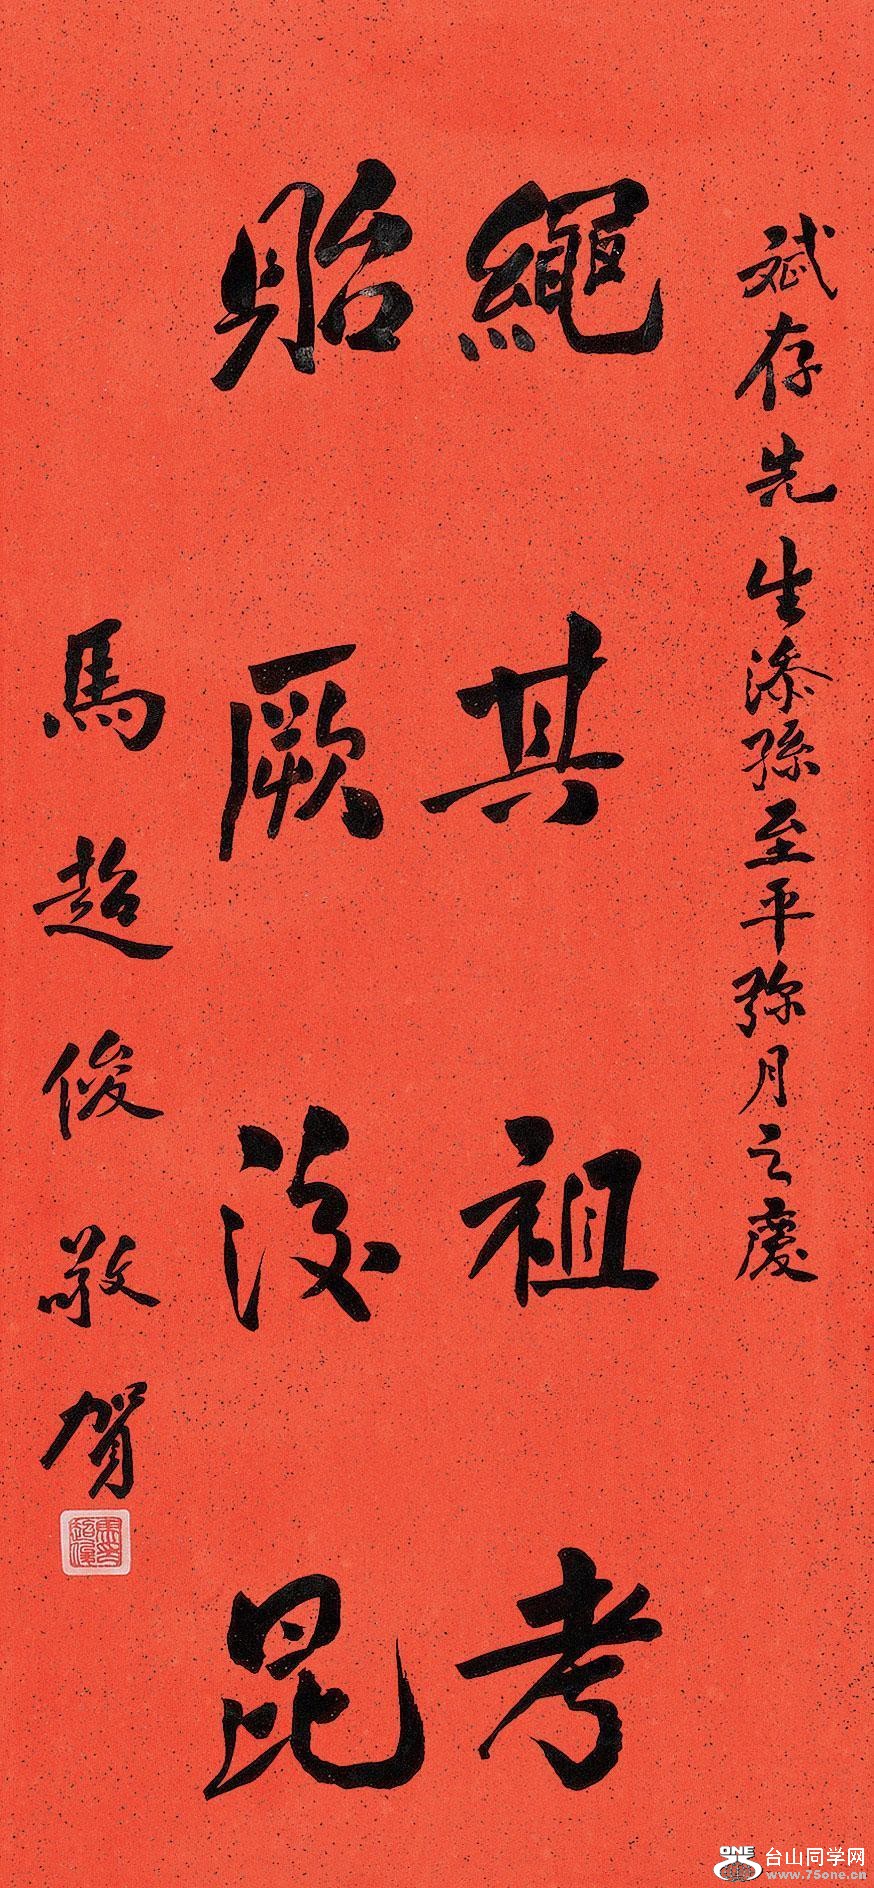 斌存先生添孫至平弥月之慶
繩其祖考
貽厥後昆
馬超俊敬賀
馬超俊
ONE
台山同学网
www.75one.cn